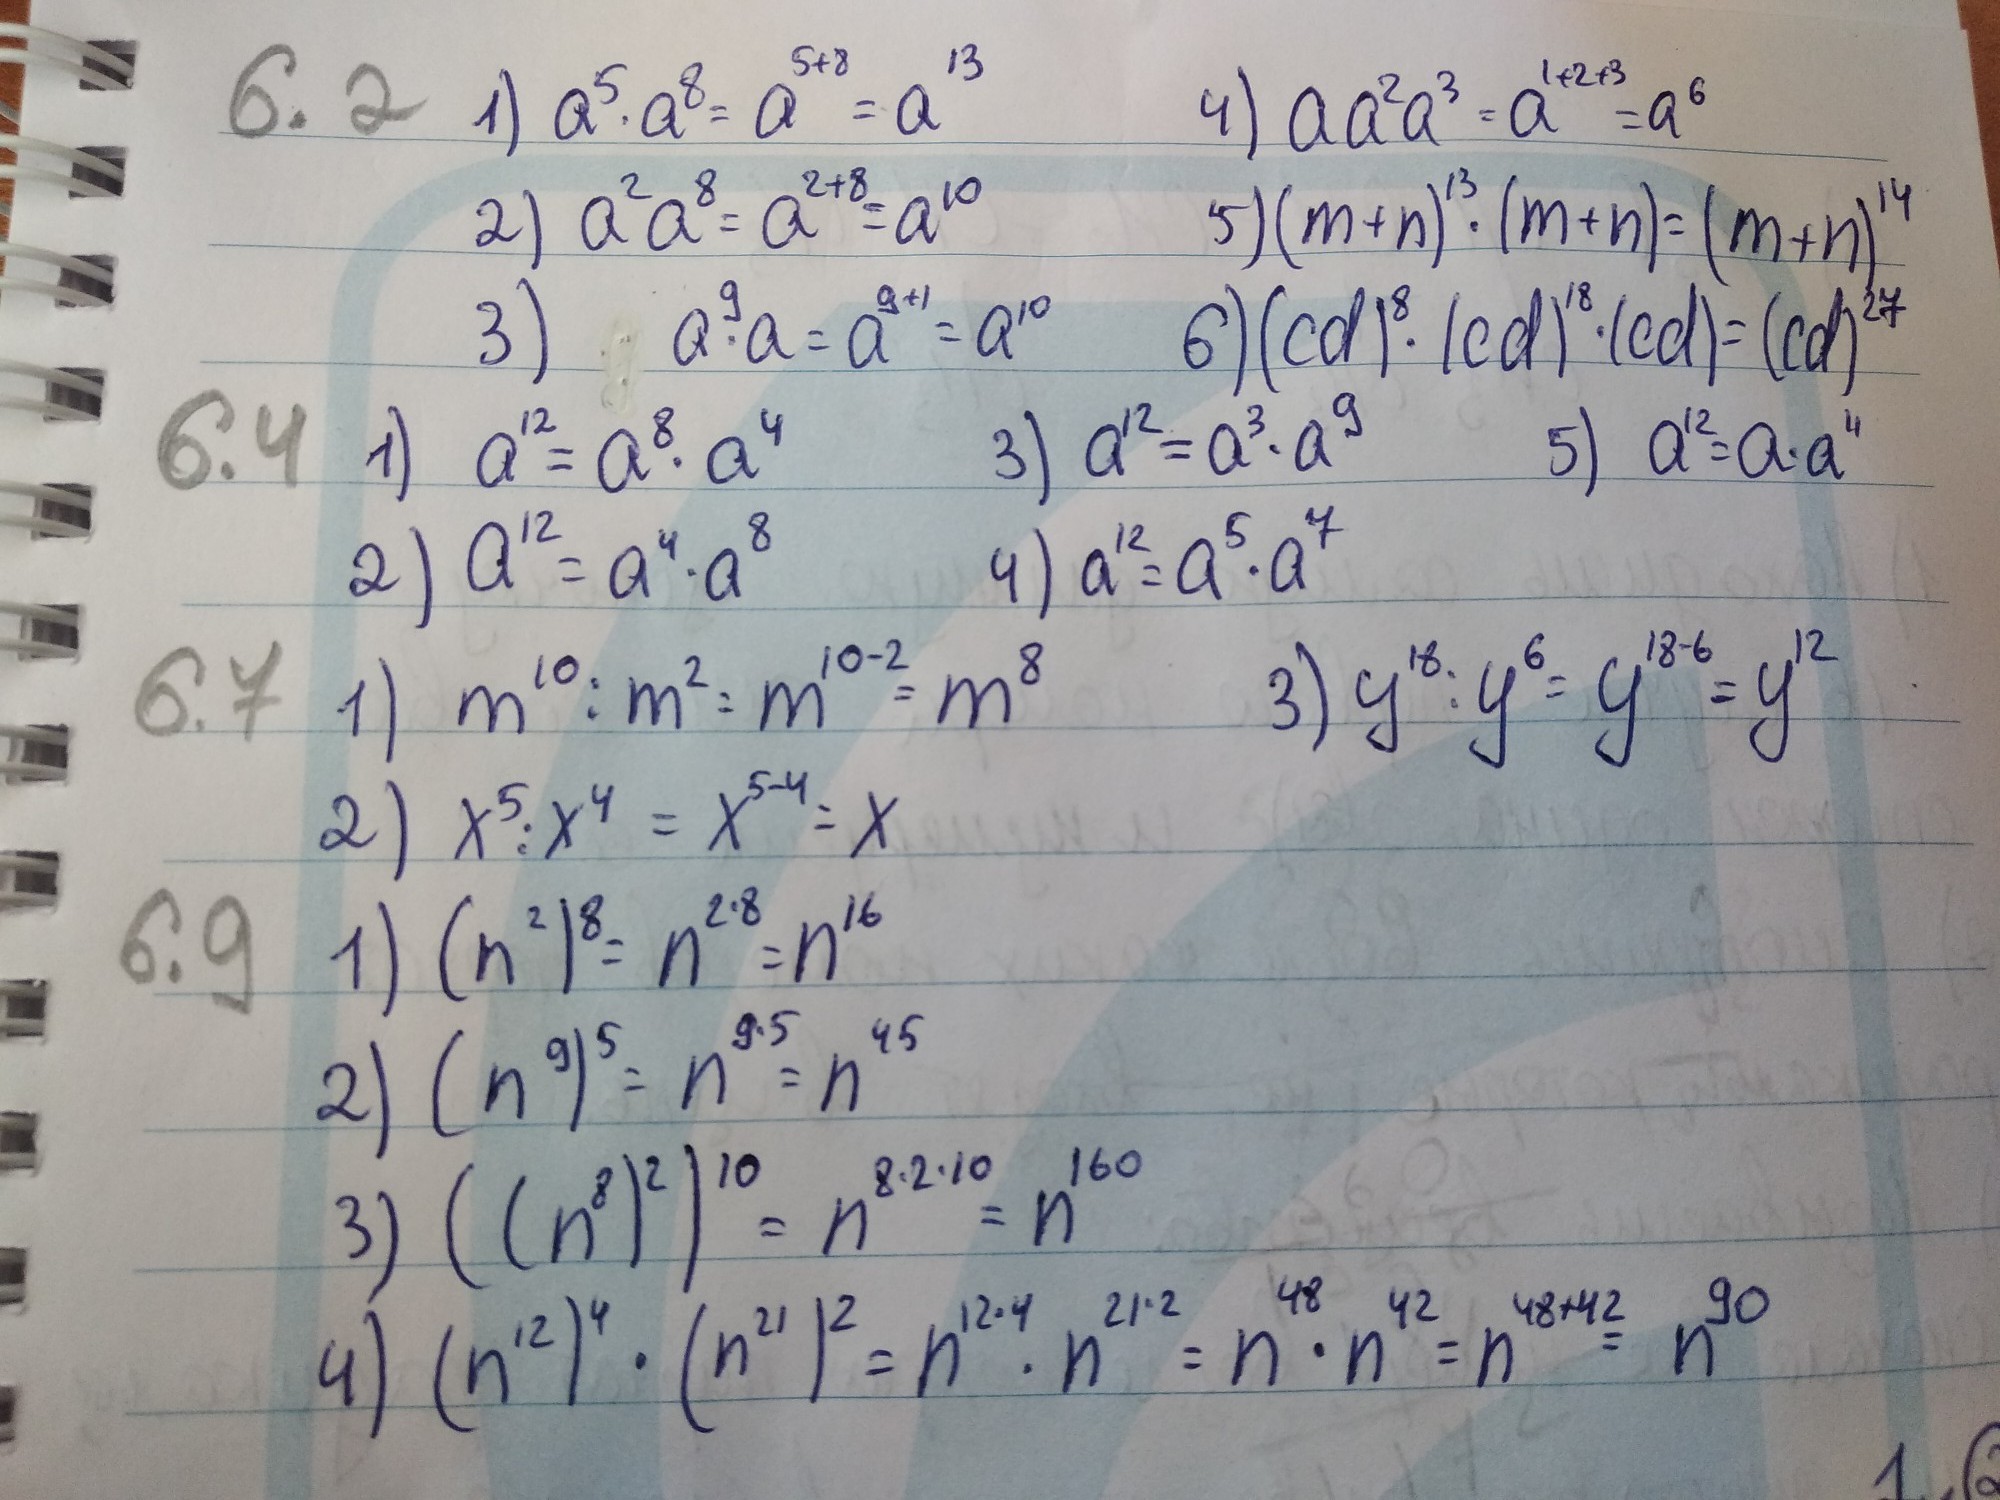 6.2 1) a⁵·a⁸=a⁵⁺⁸=a¹³ 4) aa²a³=a¹⁺²⁺³=a⁶
2) a²a⁸=a²⁺⁸=a¹⁰ 5) (m+n)¹³·(m+n)=(m+n)¹⁴
3) a⁹·a=a⁹⁺¹=a¹⁰ 6) (cd)⁸·(cd)¹⁸·(cd)=(cd)²⁷
6.4 1) a¹²=a⁸·a⁴ 3) a¹²=a³·a⁹ 5) a¹²=a·a⁴
2) a¹²=a⁴·a⁸ 4) a¹²=a⁵·a⁷
6.7 1) m¹⁰:m²=m¹⁰⁻²=m⁸ 3) y¹⁸:y⁶=y¹⁸⁻⁶=y¹²
2) x⁵:x⁴=x⁵⁻⁴=x
6.9 1) (n²)⁸=n²·⁸=n¹⁶
2) (n⁹)⁵=n⁹·⁵=n⁴⁵
3) ((n⁸)²)¹⁰=n⁸·²·¹⁰=n¹⁶⁰
4) (n¹²)⁴·(n²¹)²=n¹²·⁴·n²¹·²=n⁴⁸·n⁴²=n⁴⁸⁺⁴²=n⁹⁰